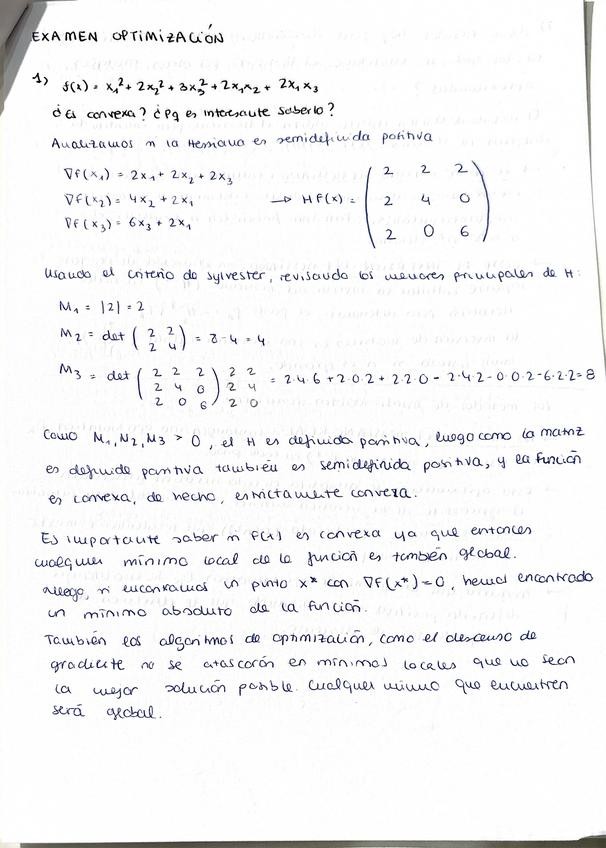 EXAMEN OPTIMIZACIÓN
1) f(x) = x₁² + 2x₂² + 3x₃² + 2x₁x₂ + 2x₁x₃
¿Es convexa? ¿Pq es interesante saberlo?
Analizamos si la Hessiana es semidefinida positiva
∇f(x₁) = 2x₁ + 2x₂ + 2x₃
∇f(x₂) = 4x₂ + 2x₁ → Hf(x) = ( 2 2 2
2 4 0
2 0 6 )
∇f(x₃) = 6x₃ + 2x₁
Usando el criterio de Sylvester, revisando los menores principales de H:
M₁ = |2| = 2
M₂ = det ( 2 2
2 4 ) = 8 - 4 = 4
M₃ = det ( 2 2 2 ) 2 2
2 4 0 2 4
2 0 6 2 0 = 2·4·6 + 2·0·2 + 2·2·0 - 2·4·2 - 0·0·2 - 6·2·2 = 8
Como M₁, M₂, M₃ > 0, el H es definida positiva, luego como la matriz
es definida positiva también es semidefinida positiva, y la función
es convexa, de hecho, estrictamente convexa.
Es importante saber si f(x) es convexa ya que entonces
cualquier mínimo local de la función es también global.
Luego, si encontramos un punto x* con ∇f(x*) = 0, hemos encontrado
un mínimo absoluto de la función.
También los algoritmos de optimización, como el descenso de
gradiente no se atascarán en mínimos locales que no sean
la mejor solución posible. Cualquier mínimo que encuentren
será global.